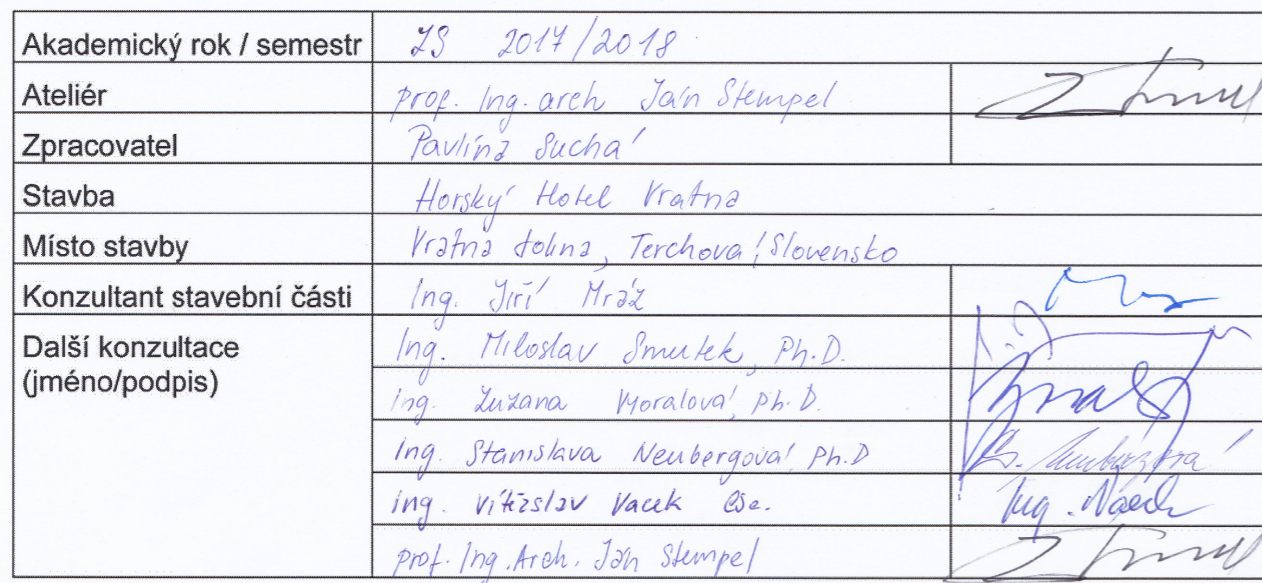 Akademický rok / semestr ZS 2017/2018
Ateliér prof. Ing. arch Ján Stempel
Zpracovatel Pavlína Suchá
Stavba Horský Hotel Vratna
Místo stavby Vratna dolina, Terchová, Slovensko
Konzultant stavební části Ing. Jiří Mráz
Další konzultace Ing. Miloslav Smutek, Ph.D.
(jméno/podpis)
Ing. Zuzana Vyoralová, Ph.D.
Ing. Stanislava Neubergová, Ph.D
Ing. Vítězslav Vacek CSc. Ing. Vacek
prof. Ing. Arch. Ján Stempel